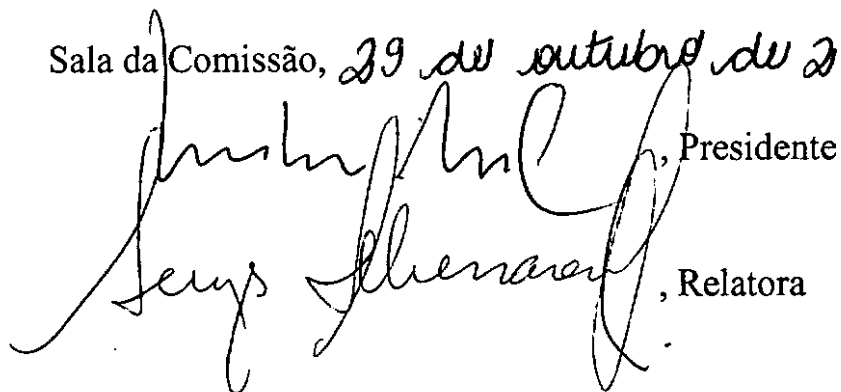 Sala da Comissão, 29 de outubro de 2
, Presidente
Serys
, Relatora